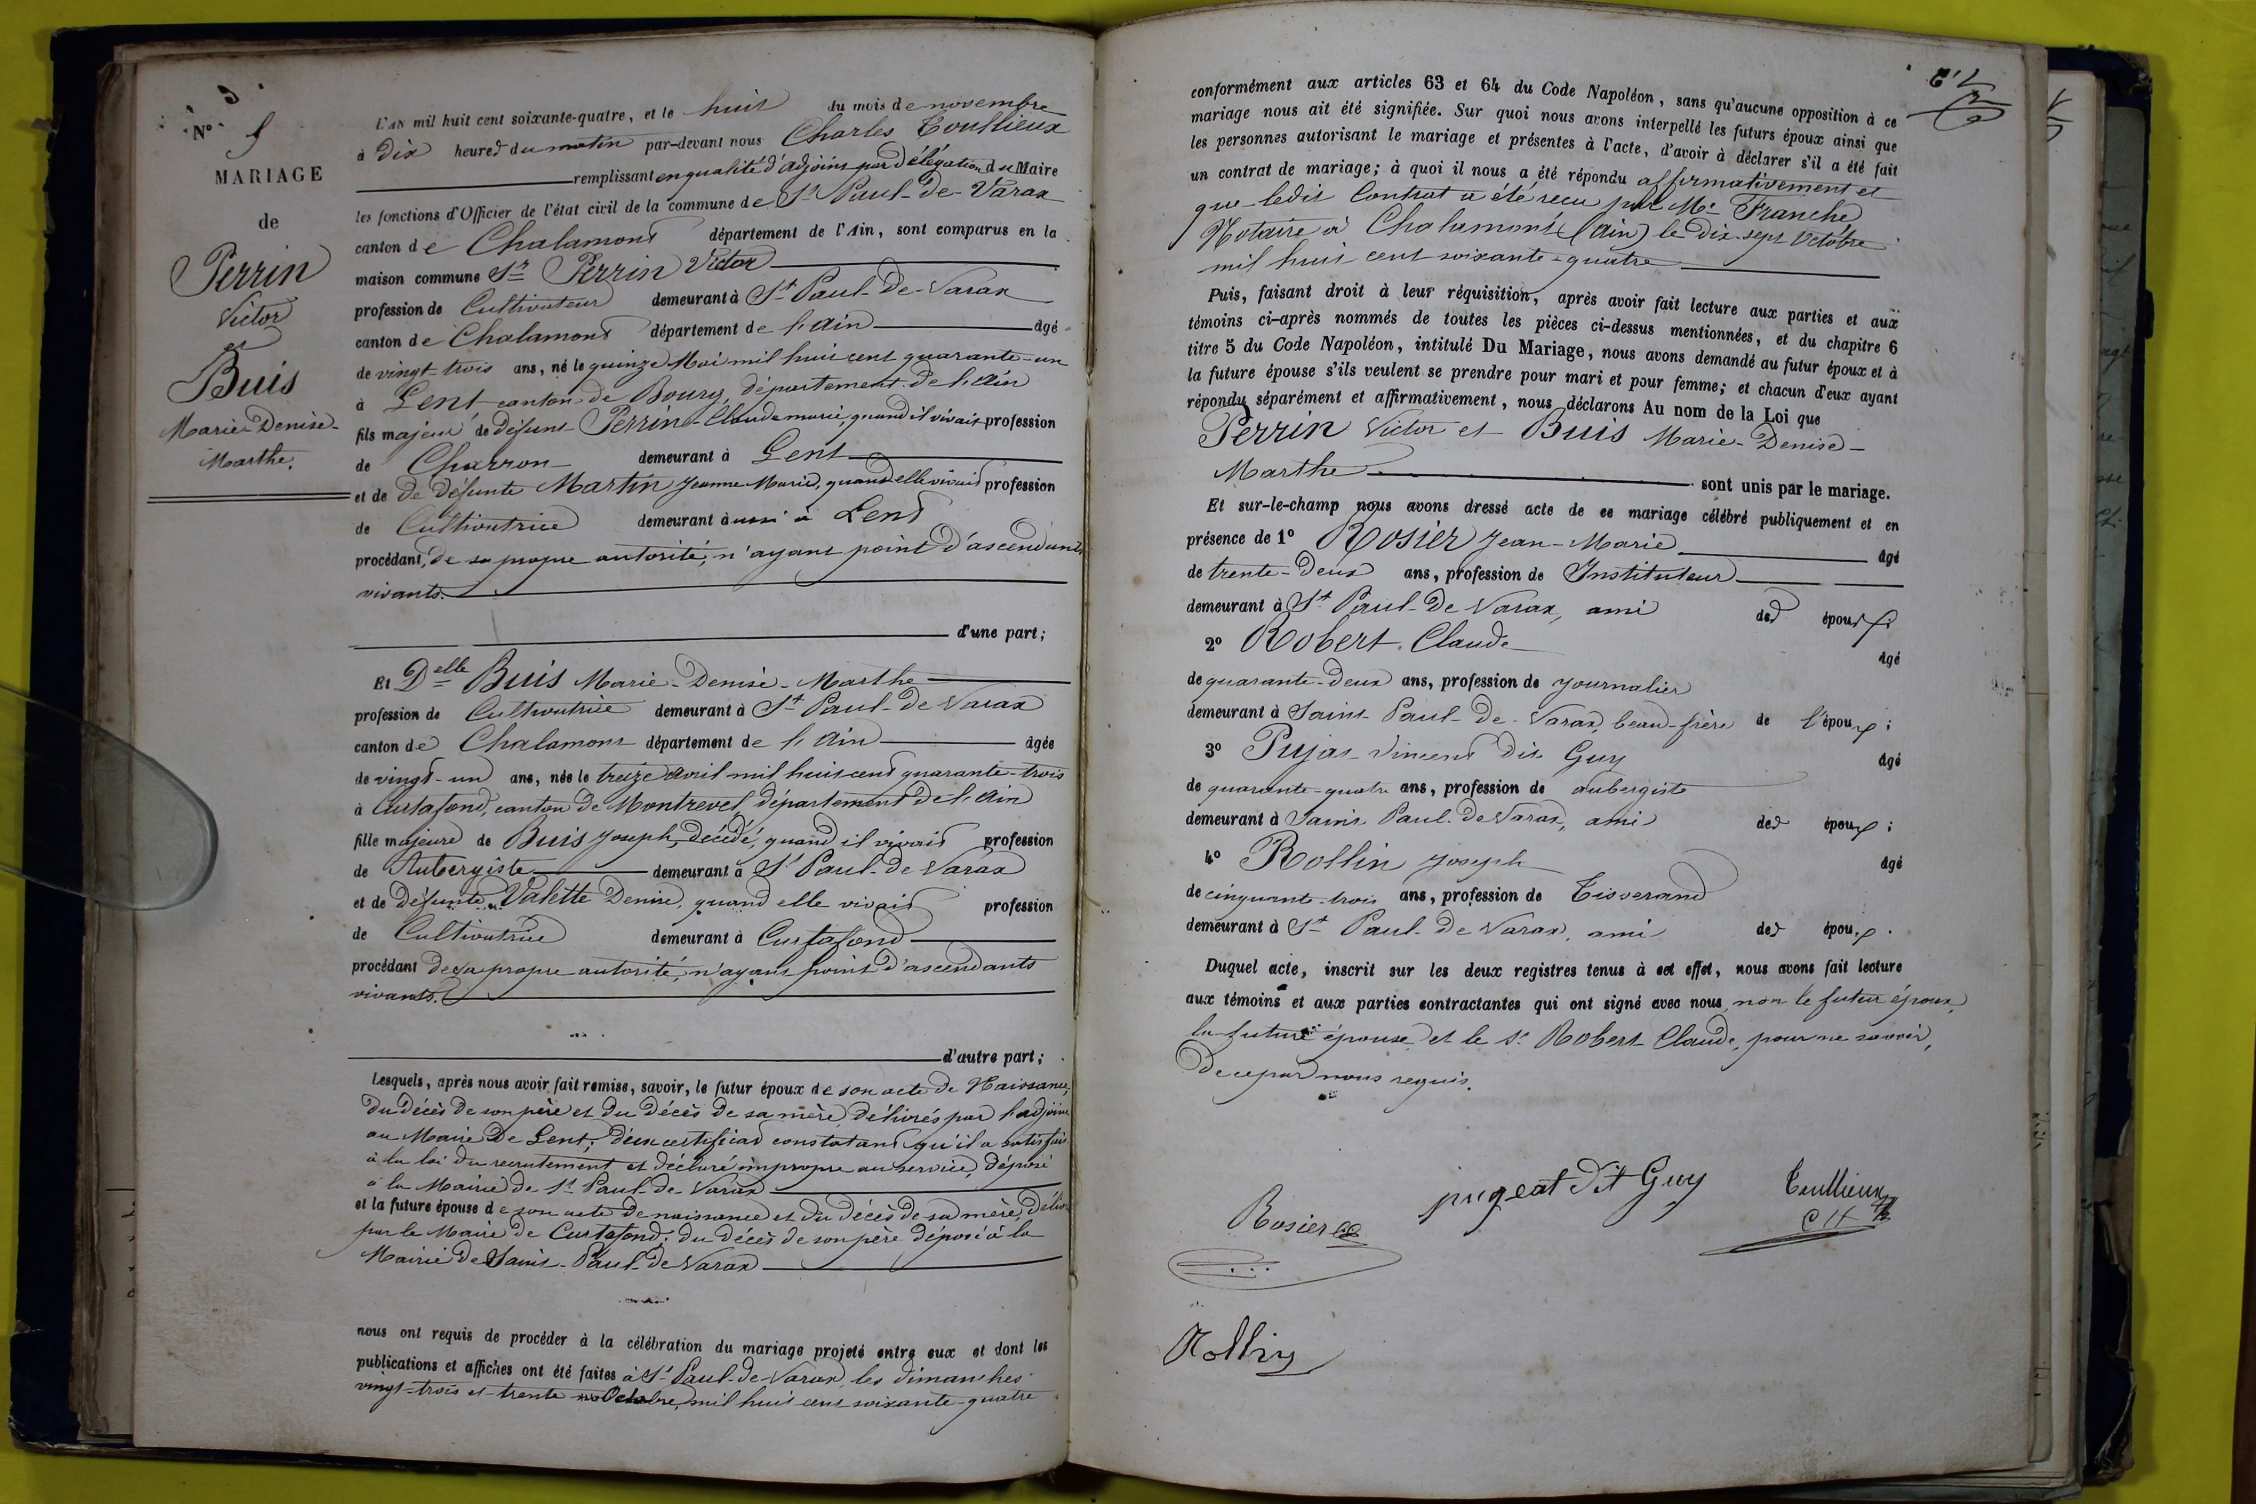 Nº 5
MARIAGE
de
Perrin
Victor
et
Buis
Marie-Denise-
Marthe.
L'AN mil huit cent soixante-quatre, et le huit du mois de novembre
à Dix heures du matin par-devant nous Charles Toullieux
remplissant en qualité d'adjoint par délégation du Maire
les fonctions d'Officier de l'état civil de la commune de St Paul-de-Varax
canton de Chalamont département de l'Ain, sont comparus en la
maison commune Sr Perrin Victor
profession de Cultivateur demeurant à St Paul-de-Varax
canton de Chalamont département de l'Ain âgé
de vingt-trois ans, né le quinze Mai mil huit cent quarante-un
à Lent canton de Bourg, département de l'Ain
fils majeur de défunt Perrin Claude marie, quand il vivait profession
de Charron demeurant à Lent
et de De défunte Martin Jeanne Marie, quand elle vivait profession
de Cultivatrice demeurant aussi à Lent
procédant, de sa propre autorité, n'ayant point d'ascendants
vivants.
d'une part;
Et Delle Buis Marie-Denise-Marthe
profession de Cultivatrice demeurant à St Paul-de Varax
canton de Chalamont département de l'Ain âgée
de vingt-un ans, née le treize avril mil huit cent quarante-trois
à Curtafond, canton de Montrevel, département de l'Ain
fille majeure de Buis Joseph, décédé, quand il vivait profession
de Aubergiste demeurant à St Paul-de Varax
et de défunte Valette Denise, quand elle vivait profession
de Cultivatrice demeurant à Curtafond
procédant de sa propre autorité, n'ayant point d'ascendants
vivants.
d'autre part;
Lesquels, après nous avoir fait remise, savoir, le futur époux de son acte de Naissance,
du décès de son père et du décès de sa mère, délivrés par l'adjoint
au Maire de Lent; d'un certificat constatant qu'il a satisfait
à la loi du recrutement et déclaré impropre au service, déposé
à la Mairie de St Paul-de-Varax
et la future épouse de son acte de naissance et du décès de sa mère, déliv
par le Maire de Curtafond; du décès de son père déposé à la
Mairie de Saint-Paul-de Varax
nous ont requis de procéder à la célébration du mariage projeté entre eux et dont les
publications et affiches ont été faites à St Paul-de-Varax, les dimanches
vingt-trois et trente Octobre, mil huit cent soixante-quatre
conformément aux articles 63 et 64 du Code Napoléon, sans qu'aucune opposition à ce
mariage nous ait été signifiée. Sur quoi nous avons interpellé les futurs époux ainsi que
les personnes autorisant le mariage et présentes à l'acte, d'avoir à déclarer s'il a été fait
un contrat de mariage; à quoi il nous a été répondu affirmativement et
que ledit Contrat a été reçu par Me Franche
Notaire à Chalamont (Ain) le dix-sept Octobre
mil huit cent soixante-quatre
Puis, faisant droit à leur réquisition, après avoir fait lecture aux parties et aux
témoins ci-après nommés de toutes les pièces ci-dessus mentionnées, et du chapitre 6
titre 5 du Code Napoléon, intitulé Du Mariage, nous avons demandé au futur époux et à
la future épouse s'ils veulent se prendre pour mari et pour femme; et chacun d'eux ayant
répondu séparément et affirmativement, nous déclarons Au nom de la Loi que
Perrin Victor et Buis Marie-Denise-
Marthe sont unis par le mariage.
Et sur-le-champ nous avons dressé acte de ce mariage célébré publiquement et en
présence de 1º Rosier Jean-Marie âgé
de trente-deux ans, profession de Instituteur
demeurant à St Paul-de Varax, ami des époux;
2º Robert Claude âgé
de quarante-deux ans, profession de journalier
demeurant à Saint-Paul-de-Varax, beau-frère de l'époux;
3º Pujat Vincent dit Guy âgé
de quarante-quatre ans, profession de aubergiste
demeurant à Saint Paul-de Varax, ami des époux;
4º Rollin Joseph âgé
de cinquante-trois ans, profession de Tisserand
demeurant à St Paul-de Varax, ami des époux.
Duquel acte, inscrit sur les deux registres tenus à cet effet, nous avons fait lecture
aux témoins et aux parties contractantes qui ont signé avec nous, non le futur époux,
la future épouse et le Sr Robert Claude, pour ne savoir,
de ce par nous requis.
Rosier
pugeat Dit Guy
Toullieux
Rollin